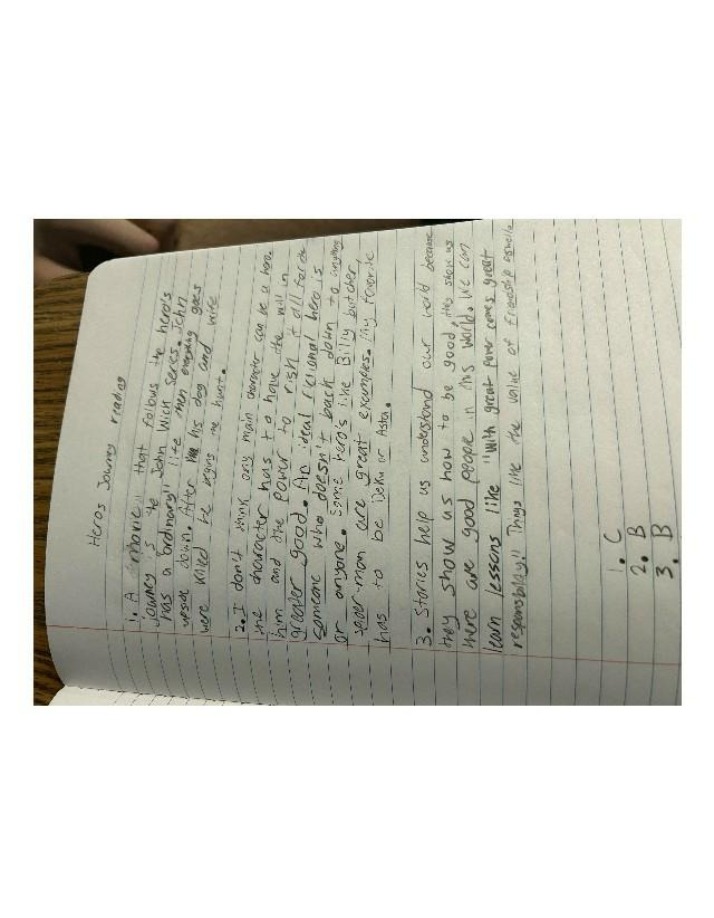 Heros Journey reading
1. A "movie" that follows the hero's
journey is te John Wick series. John
has a "ordinary" life then everything goes
upside down. After his dog and wife
were killed he begins the hunt.
2. I don't think any main character can be a hero.
the character has to have the will in
him and the power to risk it all for the
greater good. An ideal fictional hero is
someone who doesn't back down to anything
or anyone. Some hero's like Billy butcher
spider-man are great examples. My favorite
has to be Deku or Asta.
3. Stories help us understand our world because
they show us how to be good, they show us
there are good people in this world. We can
learn lessons like "with great power comes great
responsiblay!! Things like the value of friendship
1. C
2. B
3. B